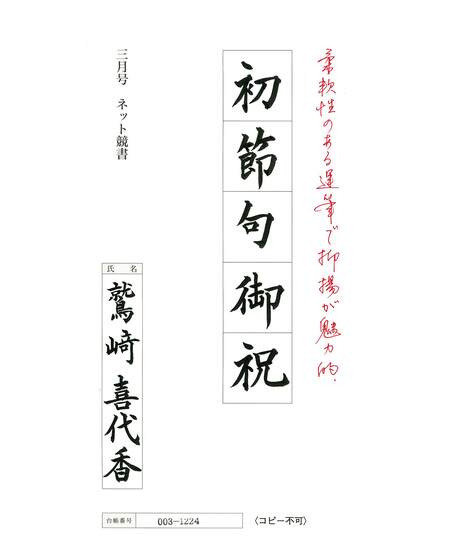 柔軟性のある運筆で抑揚が魅力的.
初節句御祝
三月号 ネット競書
氏 名
鷲﨑 喜代香
台帳番号 003-1224
〈コピー不可〉